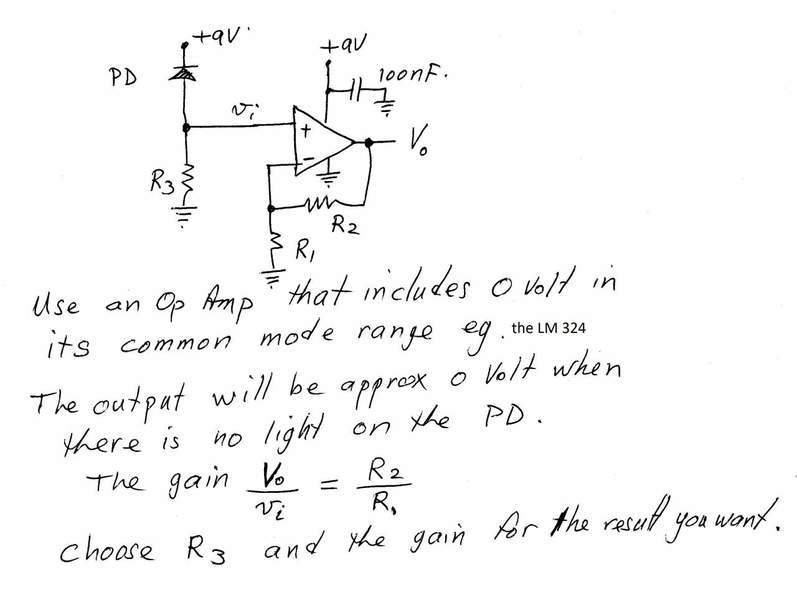 +9V
+9V
PD
100nF.
vi
+
Vo
−
R3
R2
R1
Use an Op Amp that includes 0 volt in
its common mode range eg. the LM 324
The output will be approx 0 Volt when
there is no light on the PD.
The gain Vo/vi = R2/R1
choose R3 and the gain for the result you want.